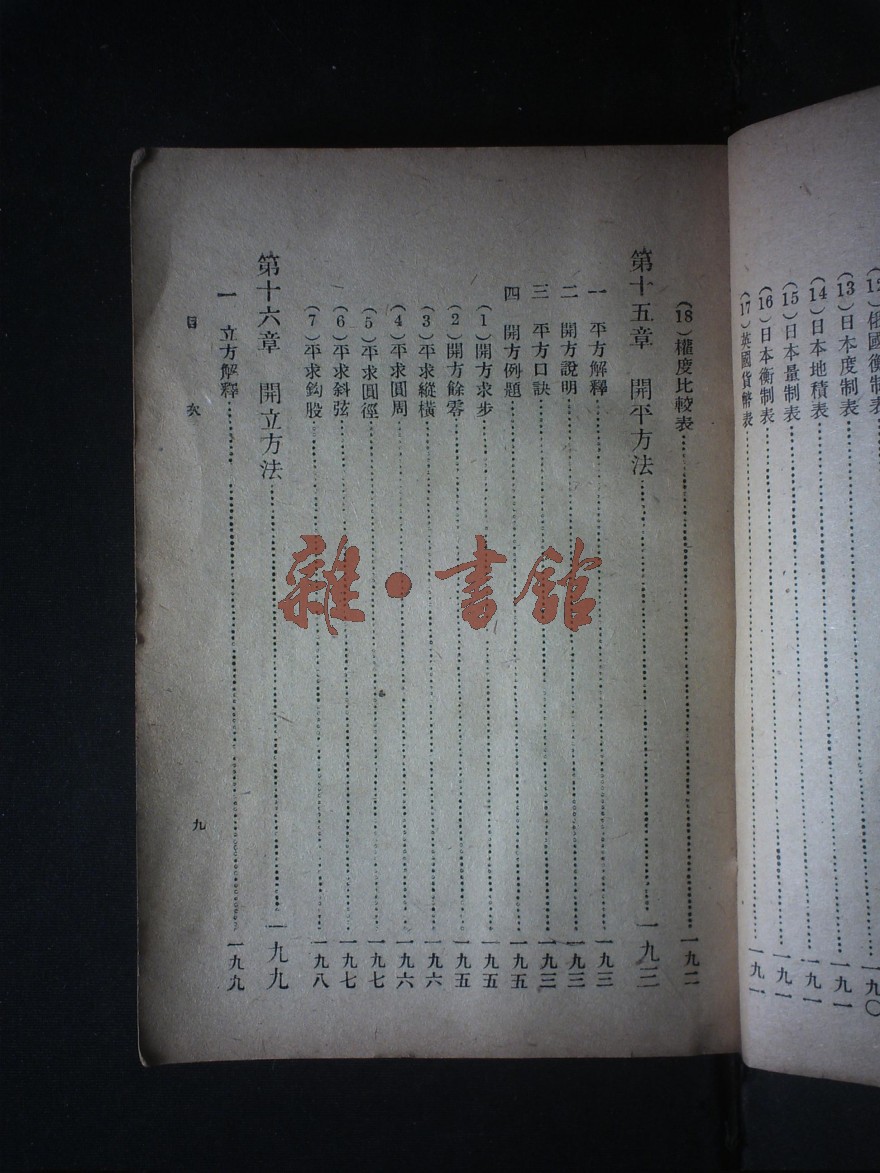 (12)俄國衡制表……一九〇
(13)日本度制表……一九一
(14)日本地積表……一九一
(15)日本量制表……一九一
(16)日本衡制表……一九一
(17)英國貨幣表……一九一
(18)權度比較表……一九二
第十五章 開平方法……一九三
一 平方解釋……一九三
二 開方說明……一九三
三 平方口訣……一九三
四 開方例題……一九五
(1)開方求步……一九五
(2)開方餘零……一九五
(3)平求縱橫……一九六
(4)平求圓周……一九六
(5)平求圓徑……一九七
(6)平求斜弦……一九七
(7)平求鈎股……一九八
第十六章 開立方法……一九九
一 立方解釋……一九九
目次
九
雜·書館